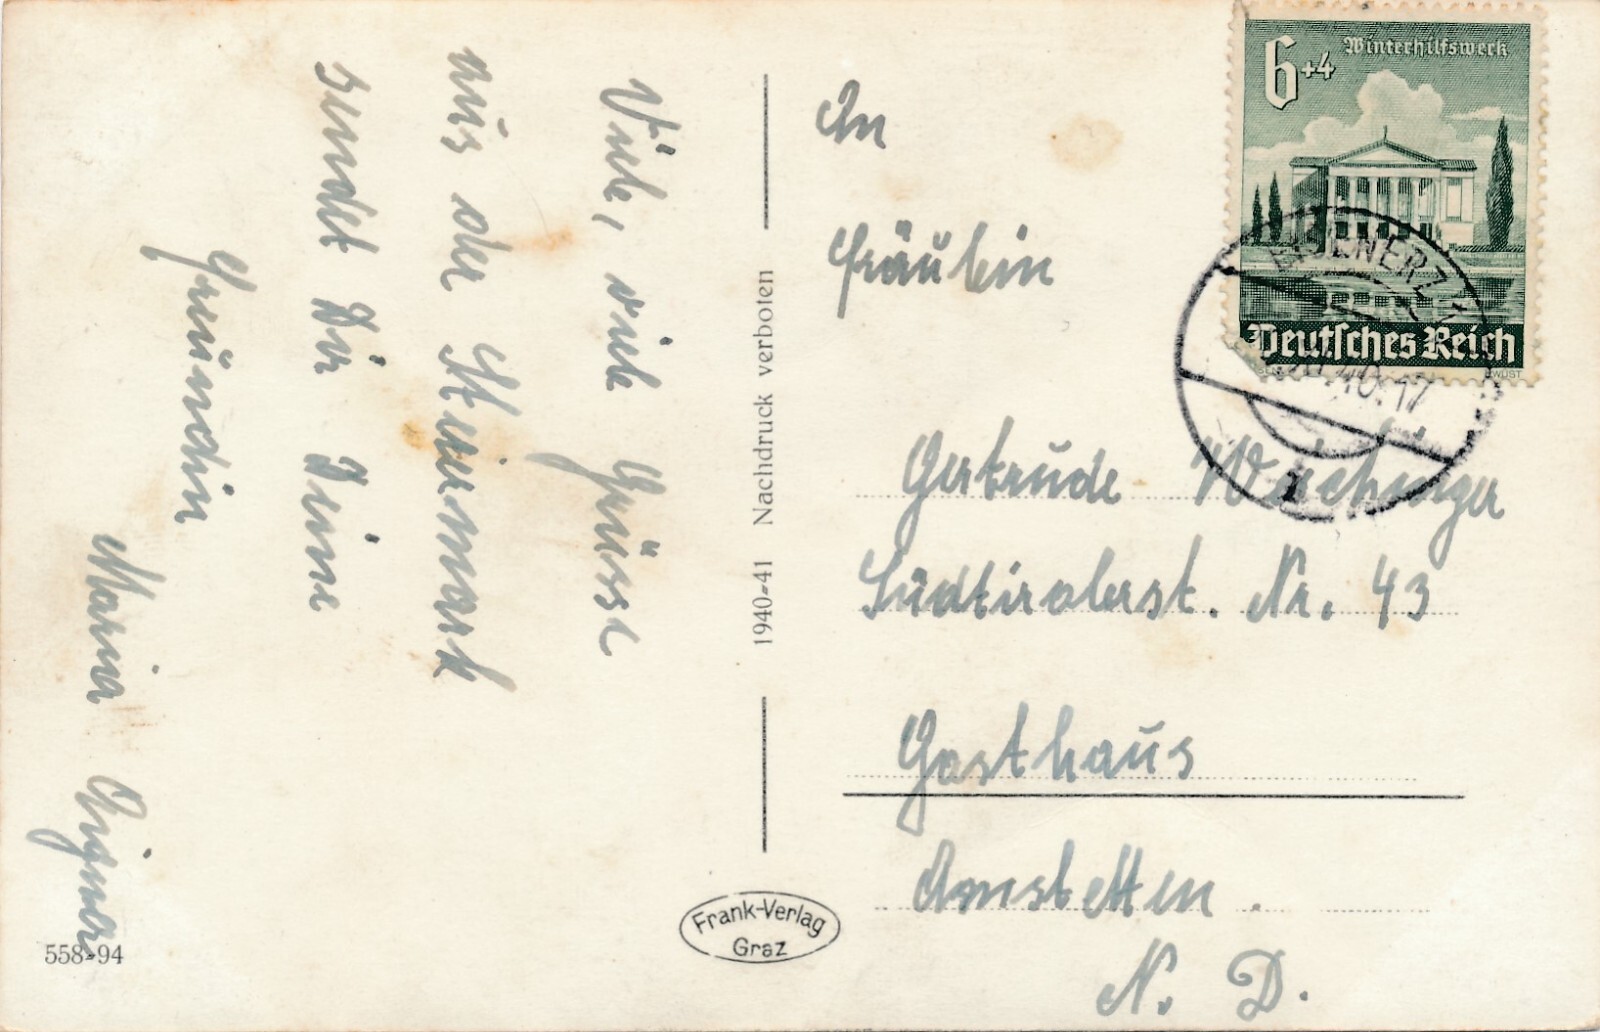 Viele, viele Grüsse
aus der Steiermark
sendet Dir Deine
Freundin
Maria Aigner
558-94
1940-41 Nachdruck verboten
Frank-Verlag
Graz
6+4 Winterhilfswerk
Deutsches Reich
EISENERZ
40.-17
An
Fräulein
Gertrude
Südtirolerst. Nr. 43
Gasthaus
Amstetten.
N. D.